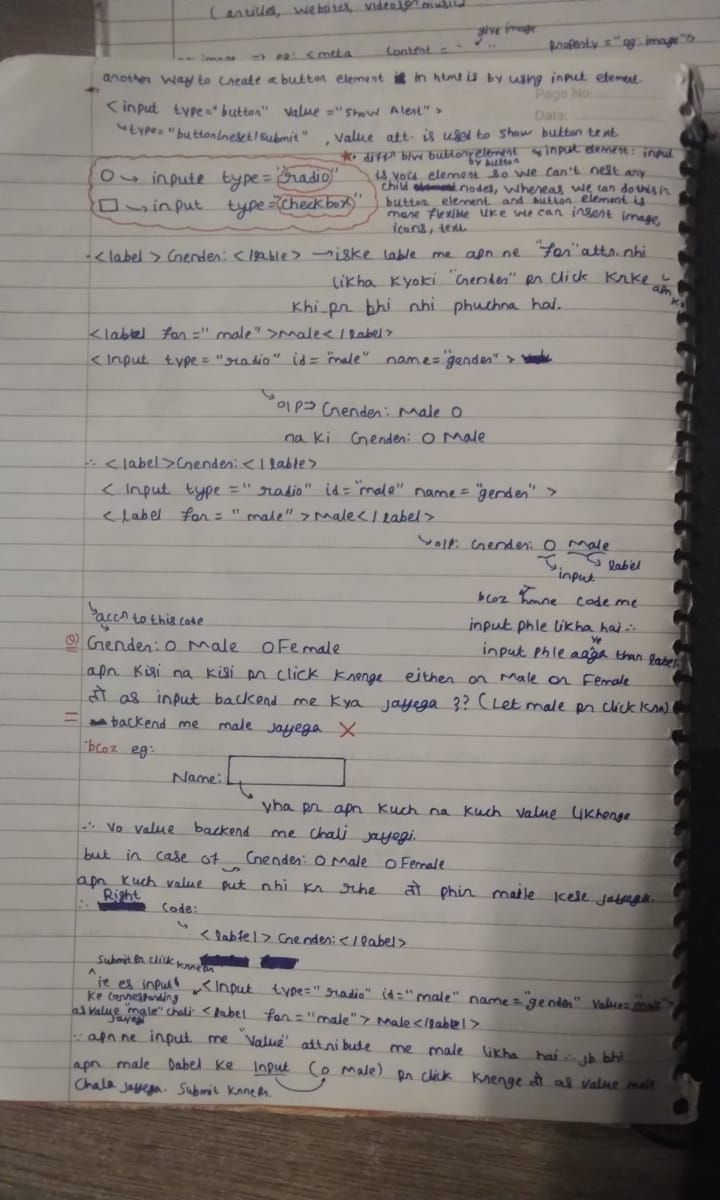 (articles, websites, videos, music)
give image
<meta content = " " property = "og:image">
another way to create a button element in html is by using input element.
Page No:
Date:
<input type="button" value="Show Alert">
↳ type="button/reset/submit" , value att. is used to show button text
★ diffn b/w button element & input element: input
by button
O → inpute type="radio"
□ → input type="checkbox"
is void element so we can't nest any
child nodes, whereas we can do this in
button element and button element is
more flexible like we can insert image,
icons, text
.<label> Gender: </lable> → iske lable me apn ne "for" attr. nhi
likha kyoki "Gender" pr click krke apn
khi pr bhi nhi phuchna hai.
<label for=" male" >Male</label>
<Input type = "radio" id= "male" name="gender" >
↳ o/p ⇒ Gender: Male O
na ki Gender: O Male
∴ <label>Gender:</lable>
< Input type =" radio" id="male" name= "gender" >
< Label for = " male" >Male</label>
↳ o/p: Gender: O Male
input label
bcoz hmne code me
input phle likha hai ∴
input phle aayega than label
↳ accn to this code
Q) Gender: O Male O Female
apn kisi na kisi pr click krenge either on Male or Female
तो as input backend me kya jayega ?? (Let male pr click kra)
= backend me male jayega X
bcoz eg:
Name:
↳ yha pr apn kuch na kuch value likhenge
∴ vo value backend me chali jayegi.
but in case of Gender: O Male O Female
apn kuch value put nhi kr rhe तो phir male kese jayega.
∴ Right Code:
↳ <label> Gender:</label>
submit pr click krne pr
ie es input <Input type=" radio" id=" male" name="gender" value="male">
ke corresponding
as value "male" chali <label for="male"> Male</label>
jayegi
∵ apn ne input me "value" attribute me male likha hai ∴ jb bhi
apn male label ke Input (o male) pr click krenge तो as value male
chala jayega. submit krne pr.